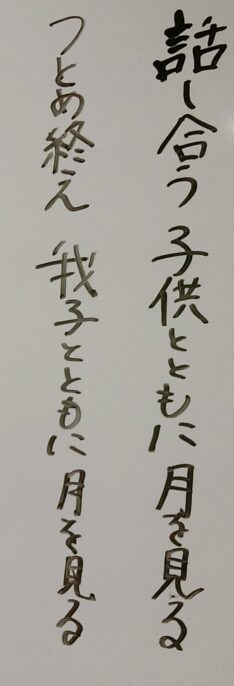 話し合う 子供とともに 月を見る
つとめ終え 我子とともに 月を見る